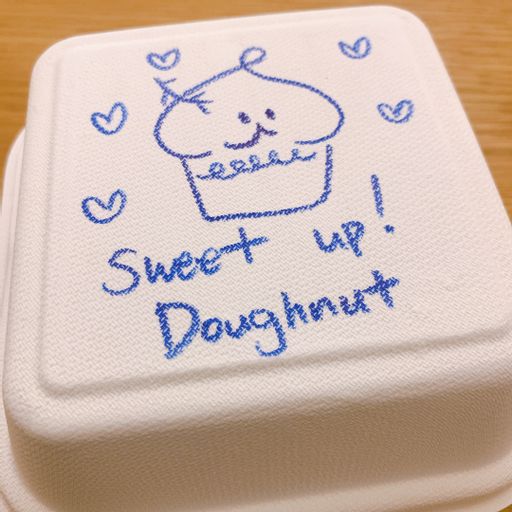 Sweet up!
Doughnut